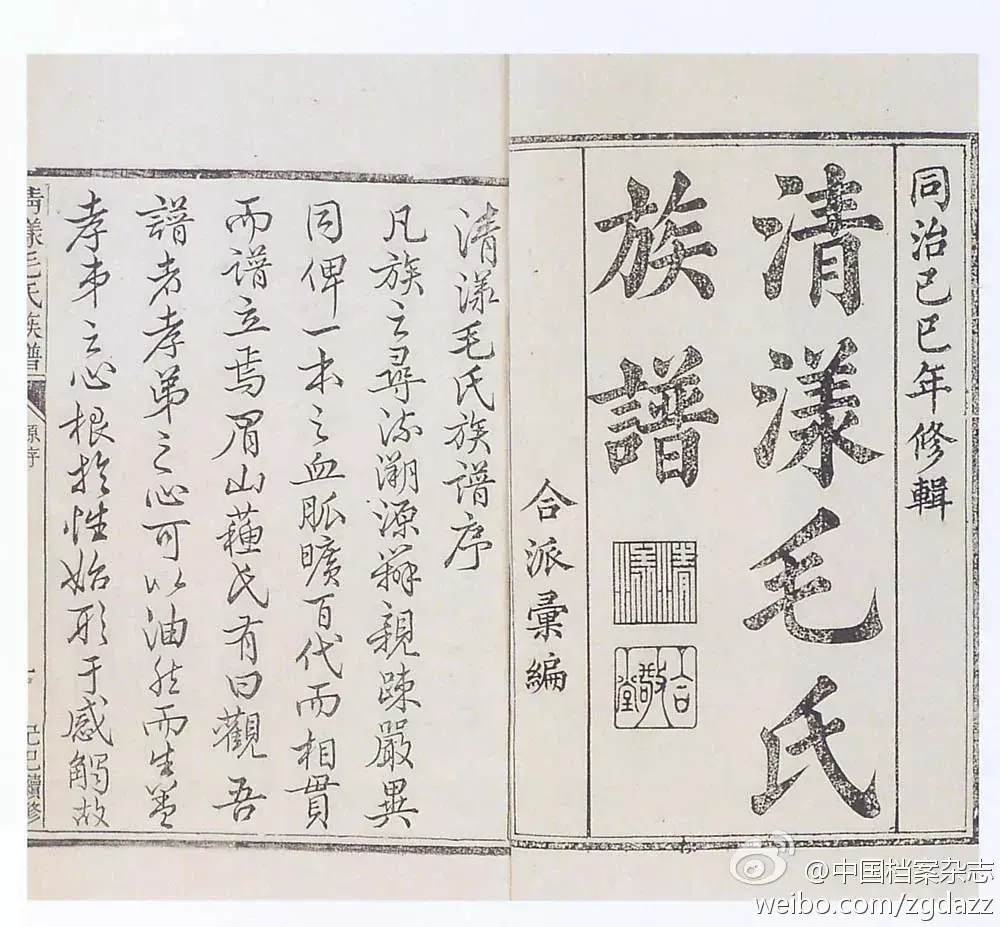 同治己巳年修輯
清漾毛氏
族譜
合派彙編
清漾
合敬堂
清漾毛氏族譜序
凡族之尋流溯源辨親疎嚴異
同俾一本之血脈曠百代而相貫
而譜立焉眉山蘓氏有曰觀吾
譜者孝弟之心可以油然而生蓋
孝弟之心根於性始形于感觸故
清漾毛氏族譜
原序
一
己巳續修
@中国档案杂志
weibo.com/zgdazz